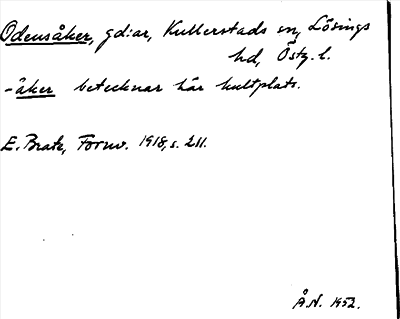 Odensåker, gdiar, Kullerstads sn, Lösings
hd, Östg. l.
-åker betecknar här kultplats.
E. Brate, Fornv. 1918, s. 211.
Å.N. 1952.